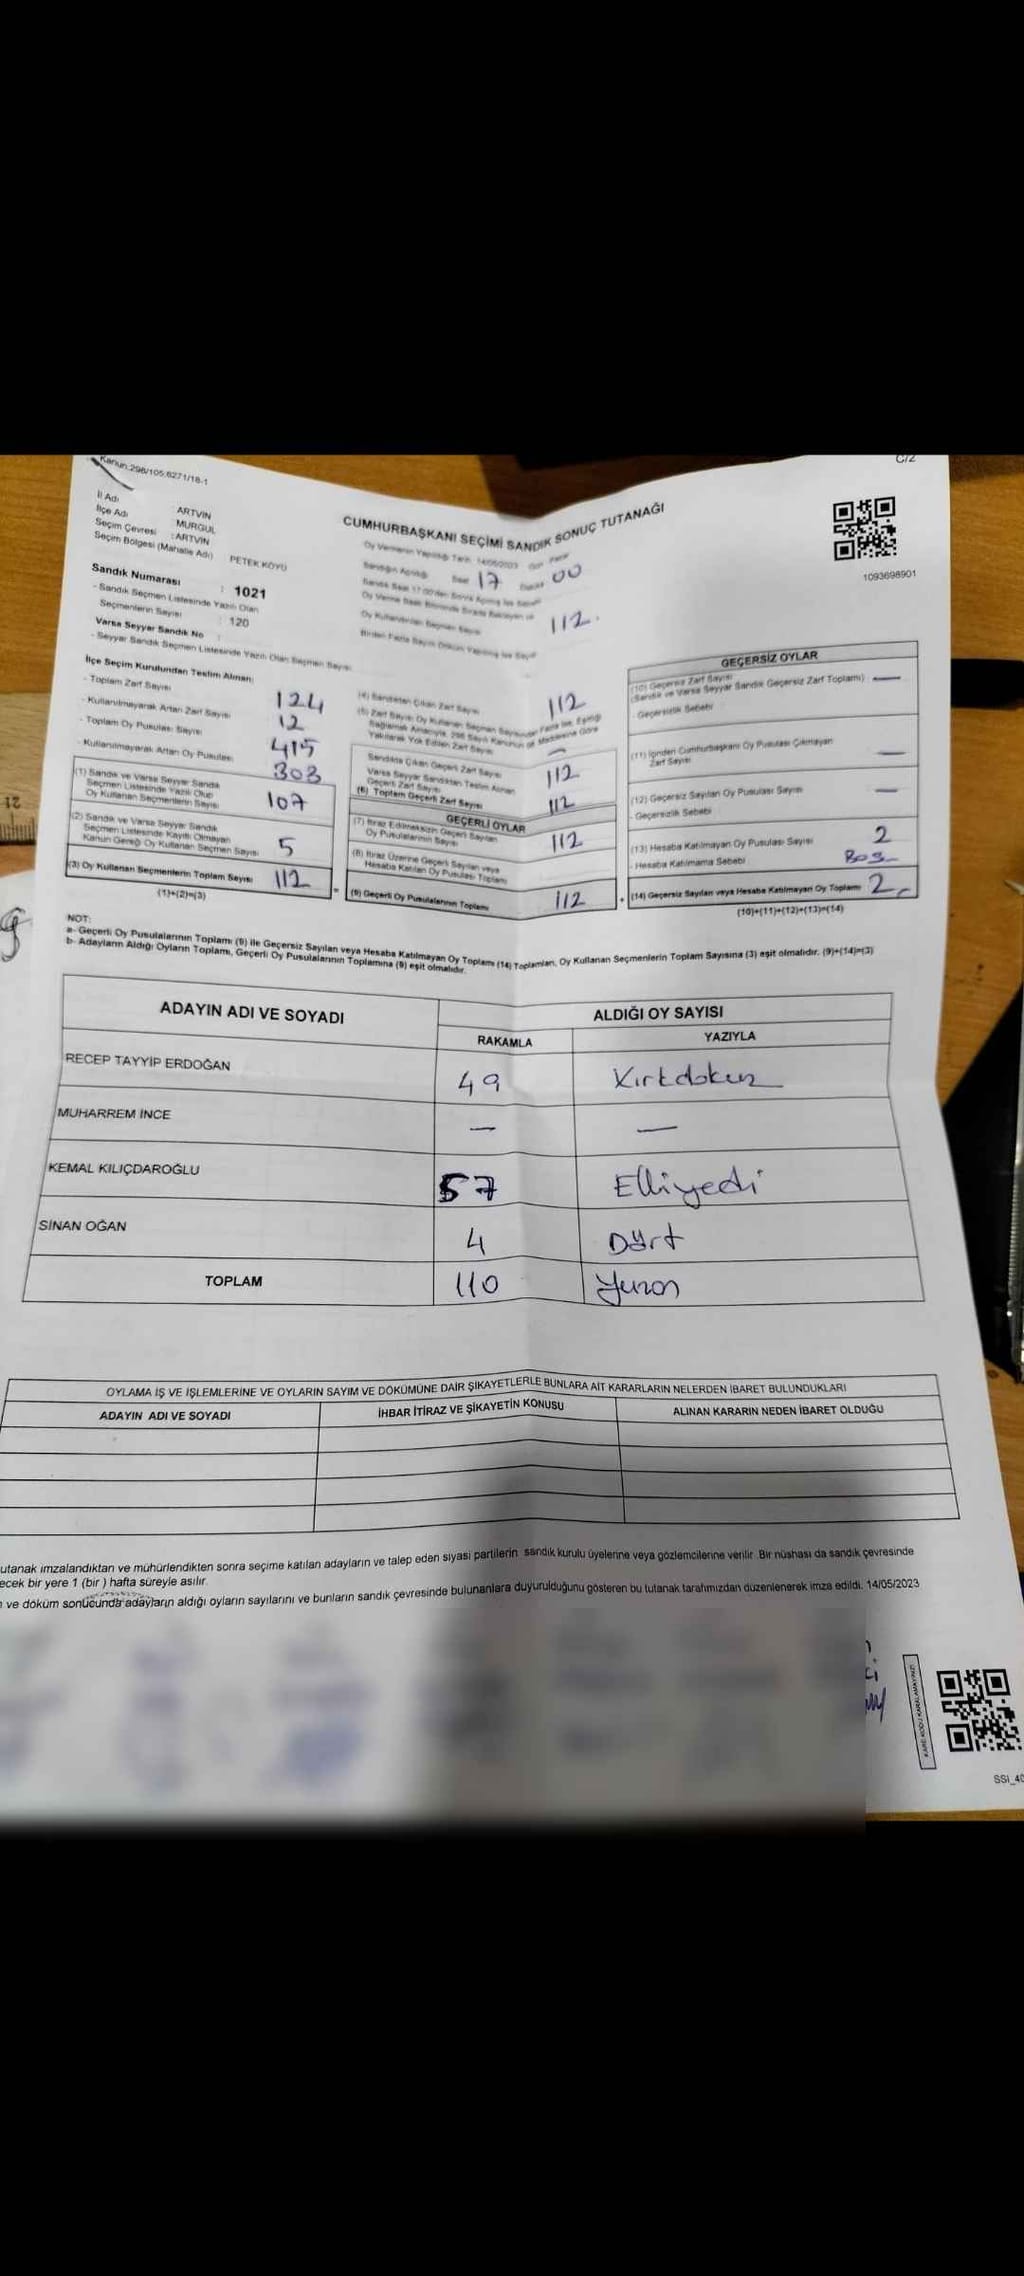 Kanun:298/105:6271/18-1
C/2
İl Adı : ARTVİN
İlçe Adı : MURGUL
Seçim Çevresi : ARTVİN
Seçim Bölgesi (Mahalle Adı) PETEK KÖYÜ
Sandık Numarası : 1021
- Sandık Seçmen Listesinde Yazılı Olan
Seçmenlerin Sayısı : 120
Varsa Seyyar Sandık No :
- Seyyar Sandık Seçmen Listesinde Yazılı Olan Seçmen Sayısı
CUMHURBAŞKANI SEÇİMİ SANDIK SONUÇ TUTANAĞI
Oy Vermenin Yapıldığı Tarih 14/05/2023 Gün Pazar
Sandığın Açıldığı Saat 17 Dakika 00
Oy Kullandırılan Seçmen Sayısı 112
1093698901
İlçe Seçim Kurulundan Teslim Alınan:
- Toplam Zarf Sayısı 124
- Kullanılmayarak Artan Zarf Sayısı 12
- Toplam Oy Pusulası Sayısı 415
- Kullanılmayarak Artan Oy Pusulası 303
(1) Sandık ve Varsa Seyyar Sandık
Seçmen Listesinde Yazılı Olup
Oy Kullanan Seçmenlerin Sayısı 107
(2) Sandık ve Varsa Seyyar Sandık
Seçmen Listesinde Kayıtlı Olmayan
Kanun Gereği Oy Kullanan Seçmen Sayısı 5
(3) Oy Kullanan Seçmenlerin Toplam Sayısı 112
(1)+(2)=(3)
(4) Sandıktan Çıkan Zarf Sayısı 112
(5) Zarf Sayısı Oy Kullanan Seçmen Sayısından Fazla ise, Eşitliği
Sağlamak Amacıyla, 298 Sayılı Kanunun 98. Maddesine Göre
Yakılarak Yok Edilen Zarf Sayısı —
Sandıkta Çıkan Geçerli Zarf Sayısı 112
Varsa Seyyar Sandıktan Teslim Alınan
Geçerli Zarf Sayısı
(6) Toplam Geçerli Zarf Sayısı 112
GEÇERLİ OYLAR
(7) İtiraz Edilmeksizin Geçerli Sayılan
Oy Pusulalarının Sayısı 112
(8) İtiraz Üzerine Geçerli Sayılan veya
Hesaba Katılan Oy Pusulası Toplamı
(9) Geçerli Oy Pusulalarının Toplamı 112
GEÇERSİZ OYLAR
(10) Geçersiz Zarf Sayısı
(Sandık ve Varsa Seyyar Sandık Geçersiz Zarf Toplamı) —
- Geçersizlik Sebebi
(11) İçinden Cumhurbaşkanı Oy Pusulası Çıkmayan
Zarf Sayısı —
(12) Geçersiz Sayılan Oy Pusulası Sayısı —
- Geçersizlik Sebebi
(13) Hesaba Katılmayan Oy Pusulası Sayısı 2
- Hesaba Katılmama Sebebi Boş
(14) Geçersiz Sayılan veya Hesaba Katılmayan Oy Toplamı 2
(10)+(11)+(12)+(13)=(14)
NOT:
a- Geçerli Oy Pusulalarının Toplamı (9) ile Geçersiz Sayılan veya Hesaba Katılmayan Oy Toplamı (14) Toplamları, Oy Kullanan Seçmenlerin Toplam Sayısına (3) eşit olmalıdır. (9)+(14)=(3)
b- Adayların Aldığı Oyların Toplamı, Geçerli Oy Pusulalarının Toplamına (9) eşit olmalıdır.
ADAYIN ADI VE SOYADI
ALDIĞI OY SAYISI
RAKAMLA YAZIYLA
RECEP TAYYİP ERDOĞAN 49 Kırkdokuz
MUHARREM İNCE — —
KEMAL KILIÇDAROĞLU 57 Elliyedi
SİNAN OĞAN 4 Dört
TOPLAM 110 Yüzon
OYLAMA İŞ VE İŞLEMLERİNE VE OYLARIN SAYIM VE DÖKÜMÜNE DAİR ŞİKAYETLERLE BUNLARA AİT KARARLARIN NELERDEN İBARET BULUNDUKLARI
ADAYIN ADI VE SOYADI İHBAR İTİRAZ VE ŞİKAYETİN KONUSU ALINAN KARARIN NEDEN İBARET OLDUĞU
utanak imzalandıktan ve mühürlendikten sonra seçime katılan adayların ve talep eden siyasi partilerin sandık kurulu üyelerine veya gözlemcilerine verilir. Bir nüshası da sandık çevresinde
ecek bir yere 1 (bir ) hafta süreyle asılır.
ve döküm sonucunda adayların aldığı oyların sayılarını ve bunların sandık çevresinde bulunanlara duyurulduğunu gösteren bu tutanak tarafımızdan düzenlenerek imza edildi. 14/05/2023
KARE KODU KARALAMAYINIZ!
SSI_40
21